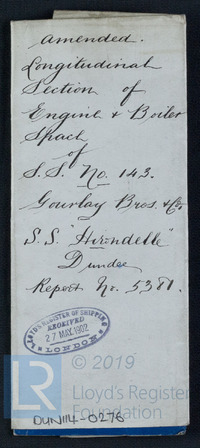 Amended.
Longitudinal
Section of
Engine & Boiler
Space
of
S.S. No. 143.
Gourlay Bros. & Co
S.S. "Hirondelle"
Dundee
Report No. 5381.
LLOYD'S REGISTER OF SHIPPING
RECEIVED
27 MAY. 1902
LONDON
© 2019
LR
Lloyd's Register
Foundation
DUN114-0276